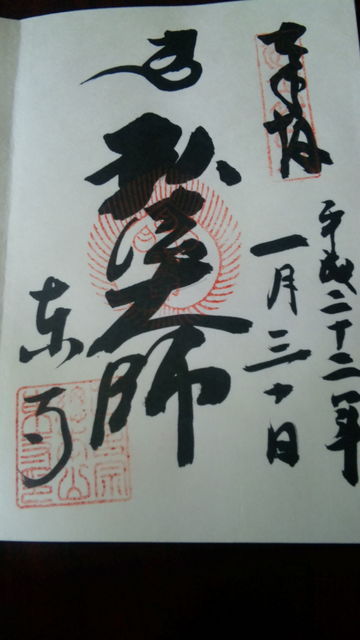 奉拝
平成二十二年
一月三十日
弘法大師
東寺